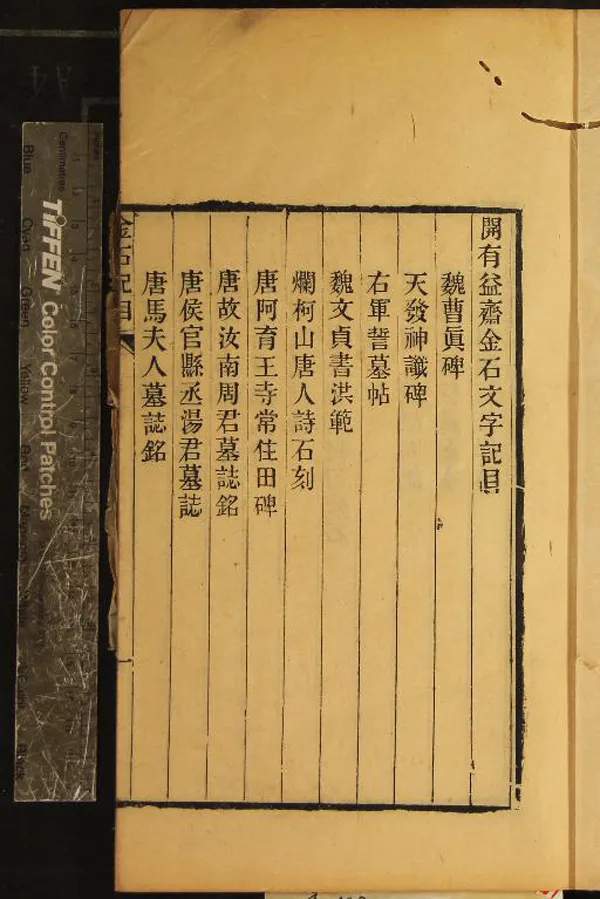 開有益齋金石文字記目
魏曹眞碑
天發神讖碑
右軍誓墓帖
魏文貞書洪範
爛柯山唐人詩石刻
唐阿育王寺常住田碑
唐故汝南周君墓誌銘
唐侯官縣丞湯君墓誌
唐馬夫人墓誌銘
金石記目
Centimetres
Blue
Cyan
Green
Yellow
TIFFEN Color Control Patches